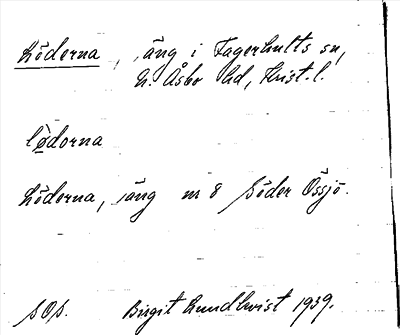 Löderna, äng i Fagerhults sn,
N. Åsbo hd, Krist. l.
lø̀dorna
Löderna, äng nr 8 Söder Össjö.
SOS. Birgit Lundkvist 1939.